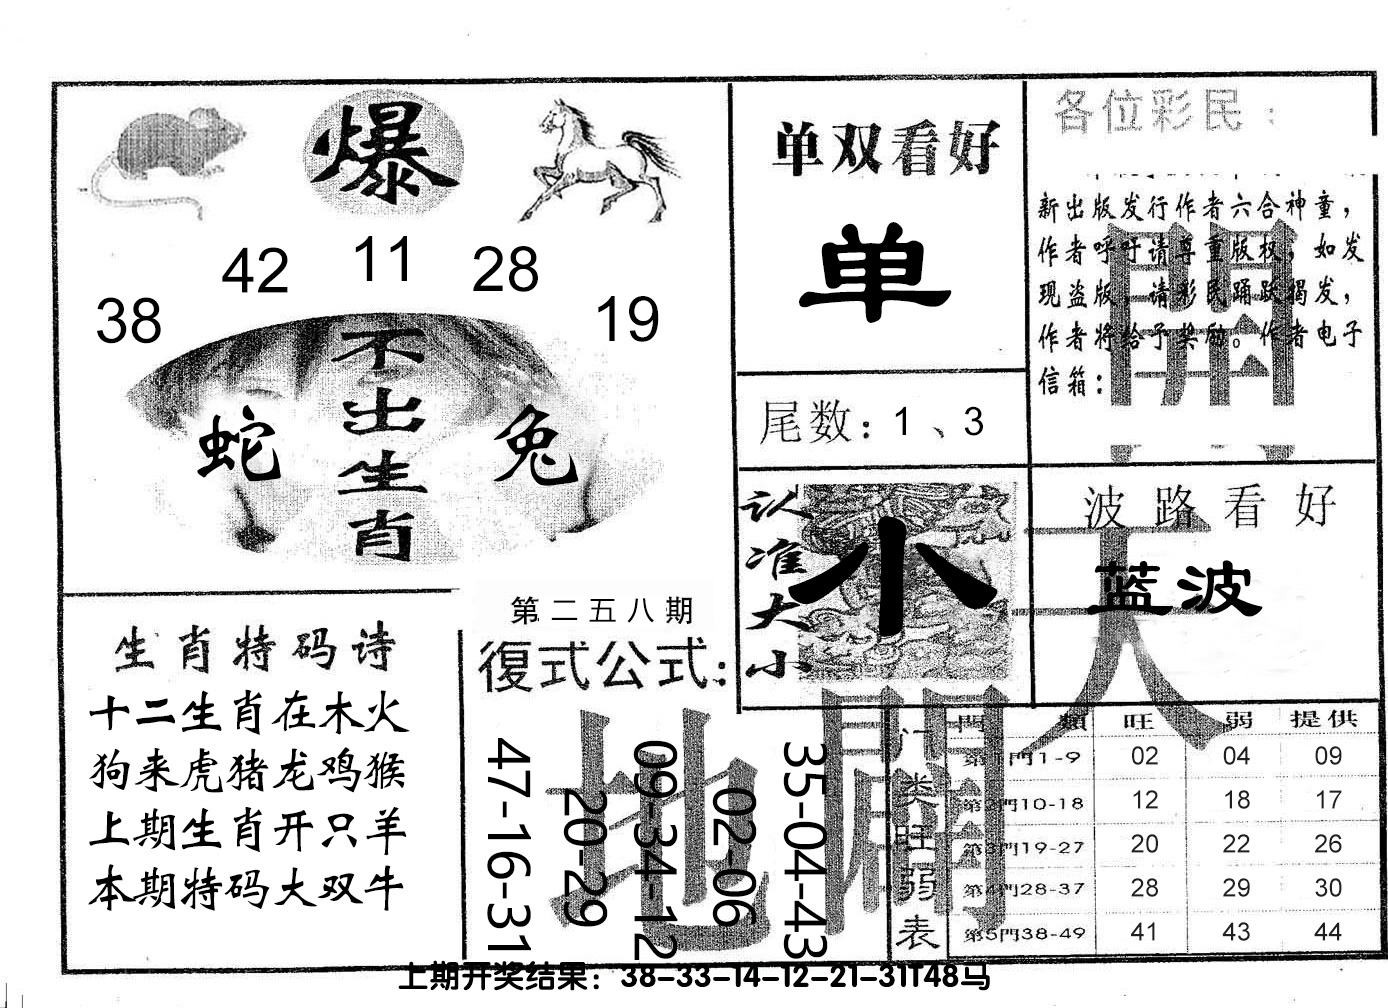 爆
38 42 11 28 19
不出生肖
蛇 兔
单双看好
单
尾数：1、3
认准大小
小
各位彩民：
新出版发行作者六合神童，
作者呼吁请尊重版权，如发
现盗版，请彩民踊跃揭发，
作者将给予奖励。作者电子
信箱：
開
波路看好
蓝波
天
生肖特码诗
十二生肖在木火
狗来虎猪龙鸡猴
上期生肖开只羊
本期特码大双牛
第二五八期
復式公式：
47-16-31
20-29
09-34-12
02-06
35-04-43
地
门类旺弱表
門類 旺 弱 提供
第1門1-9 02 04 09
第2門10-18 12 18 17
第3門19-27 20 22 26
第4門28-37 28 29 30
第5門38-49 41 43 44
上期开奖结果：38-33-14-12-21-31T48马